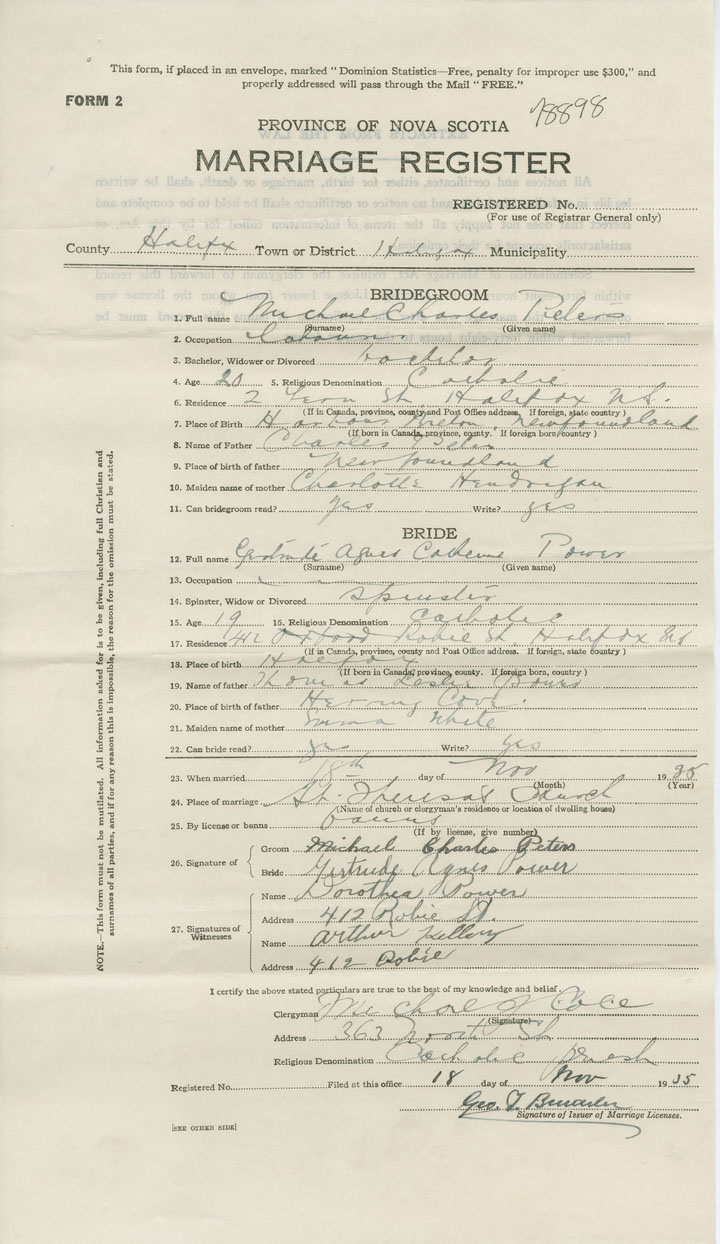 This form, if placed in an envelope, marked "Dominion Statistics—Free, penalty for improper use $300," and
properly addressed will pass through the Mail "FREE."
FORM 2
78898
PROVINCE OF NOVA SCOTIA
MARRIAGE REGISTER
REGISTERED No.
(For use of Registrar General only)
County Halifax Town or District Halifax Municipality
BRIDEGROOM
1. Full name Michael Charles Peters
(Surname) (Given name)
2. Occupation
3. Bachelor, Widower or Divorced bachelor
4. Age 20 5. Religious Denomination Catholic
6. Residence 2 St. Halifax N.S.
(If in Canada, province, county and Post Office address. If foreign, state country)
7. Place of Birth Harbour Breton, Newfoundland
(If born in Canada, province, county. If foreign born, country)
8. Name of Father Charles Peters
9. Place of birth of father Newfoundland
10. Maiden name of mother Charlotte Hendrigan
11. Can bridegroom read? Yes Write? yes
BRIDE
12. Full name Gertrude Agnes Catherine Power
(Surname) (Given name)
13. Occupation
14. Spinster, Widow or Divorced Spinster
15. Age 19 16. Religious Denomination Catholic
17. Residence 412 Oxford Robie St. Halifax NS
(If in Canada, province, county and Post Office address. If foreign, state country)
18. Place of birth Halifax
(If born in Canada, province, county. If foreign born, country)
19. Name of father Thomas Leslie Power
20. Place of birth of father Herring Cove.
21. Maiden name of mother Emma White
22. Can bride read? yes Write? yes
23. When married 18th day of Nov 1935
(Month) (Year)
24. Place of marriage St. Theresas Church
(Name of church or clergyman's residence or location of dwelling house)
25. By license or banns banns
(If by license, give number)
26. Signature of
Groom Michael Charles Peters
Bride Gertrude Agnes Power
27. Signatures of Witnesses
Name Dorothea Power
Address 412 Robie St.
Name Arthur Kelly
Address 412 Robie
I certify the above stated particulars are true to the best of my knowledge and belief.
Clergyman
(Signature)
Address 363 North St
Religious Denomination Catholic priest
Registered No. Filed at this office 18 day of Nov 1935
Geo. T.
Signature of Issuer of Marriage Licenses.
[SEE OTHER SIDE]
NOTE.—This form must not be mutilated. All information asked for is to be given, including full Christian and
surnames of all parties, and if for any reason this is impossible, the reason for the omission must be stated.